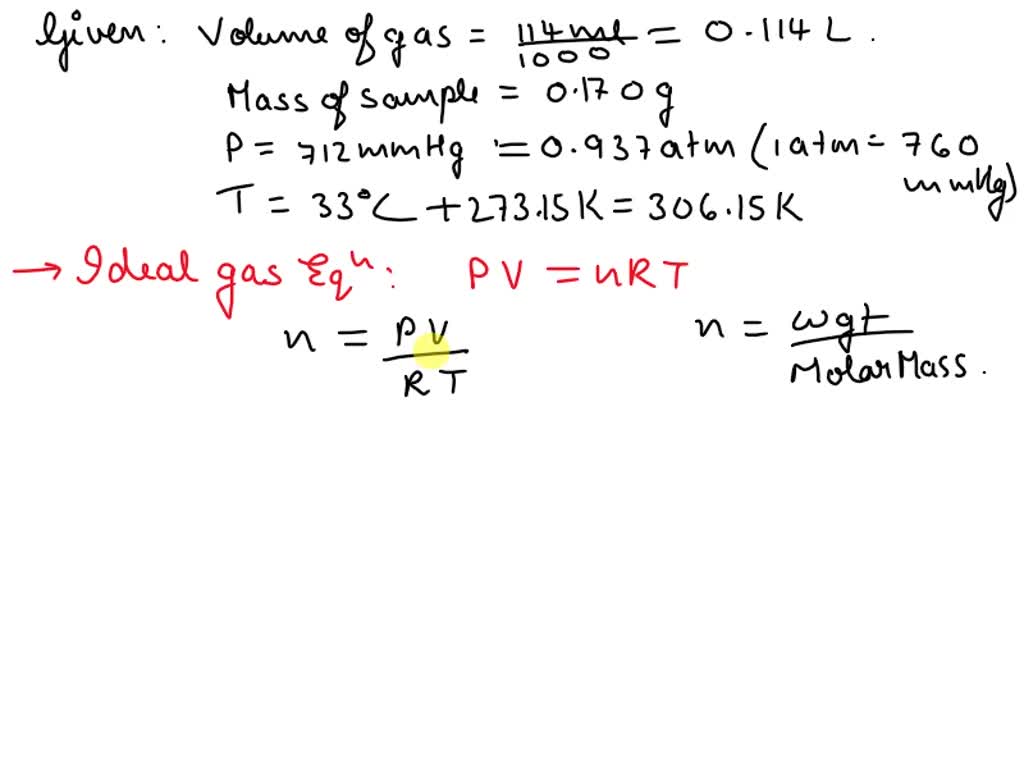 Given: Volume of gas = 114ml/1000 = 0.114 L.
Mass of sample = 0.170g
P = 712mmHg = 0.937atm (1atm = 760 mmHg)
T = 33°C + 273.15K = 306.15K
→ Ideal gas Eqⁿ: PV = nRT
n = PV/RT n = wgt/Molar Mass.